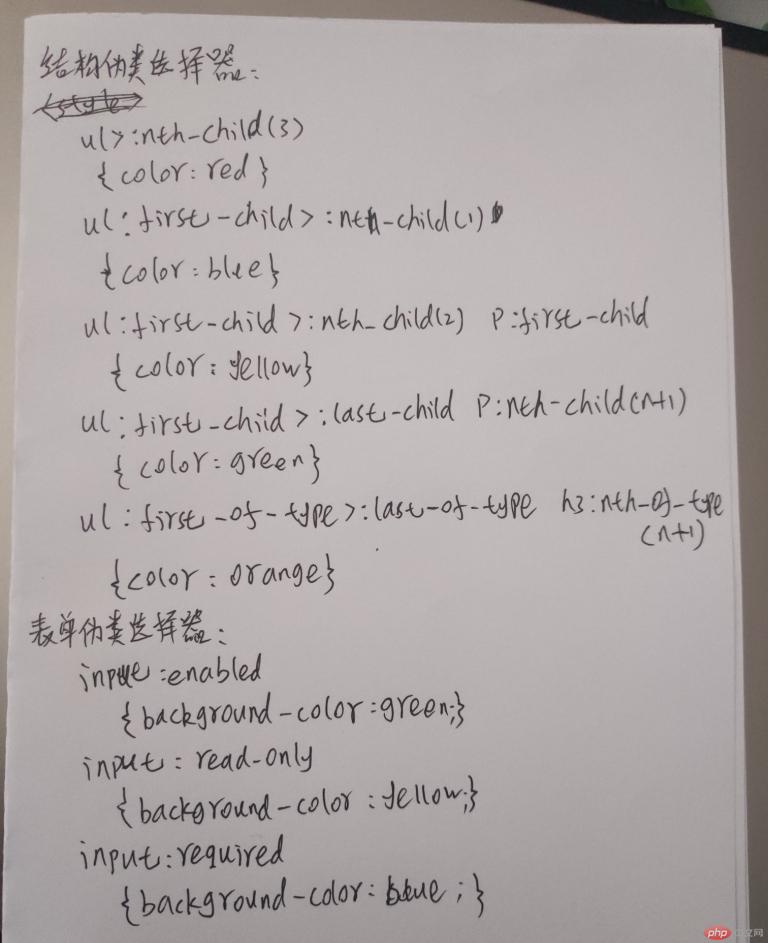 结构伪类选择器：
<style>
ul>:nth-child(3)
{color:red}
ul:first-child>:nth-child(1)
{color:blue}
ul:first-child>:nth-child(2) p:first-child
{color:yellow}
ul:first-child>:last-child p:nth-child(n+1)
{color:green}
ul:first-of-type>:last-of-type h3:nth-of-type
(n+1)
{color:orange}
表单伪类选择器：
input:enabled
{background-color:green;}
input:read-only
{background-color:yellow;}
input:required
{background-color:blue;}
php 中文网